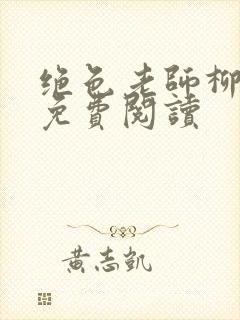 绝色老师柳
免費閱讀
黃志凱